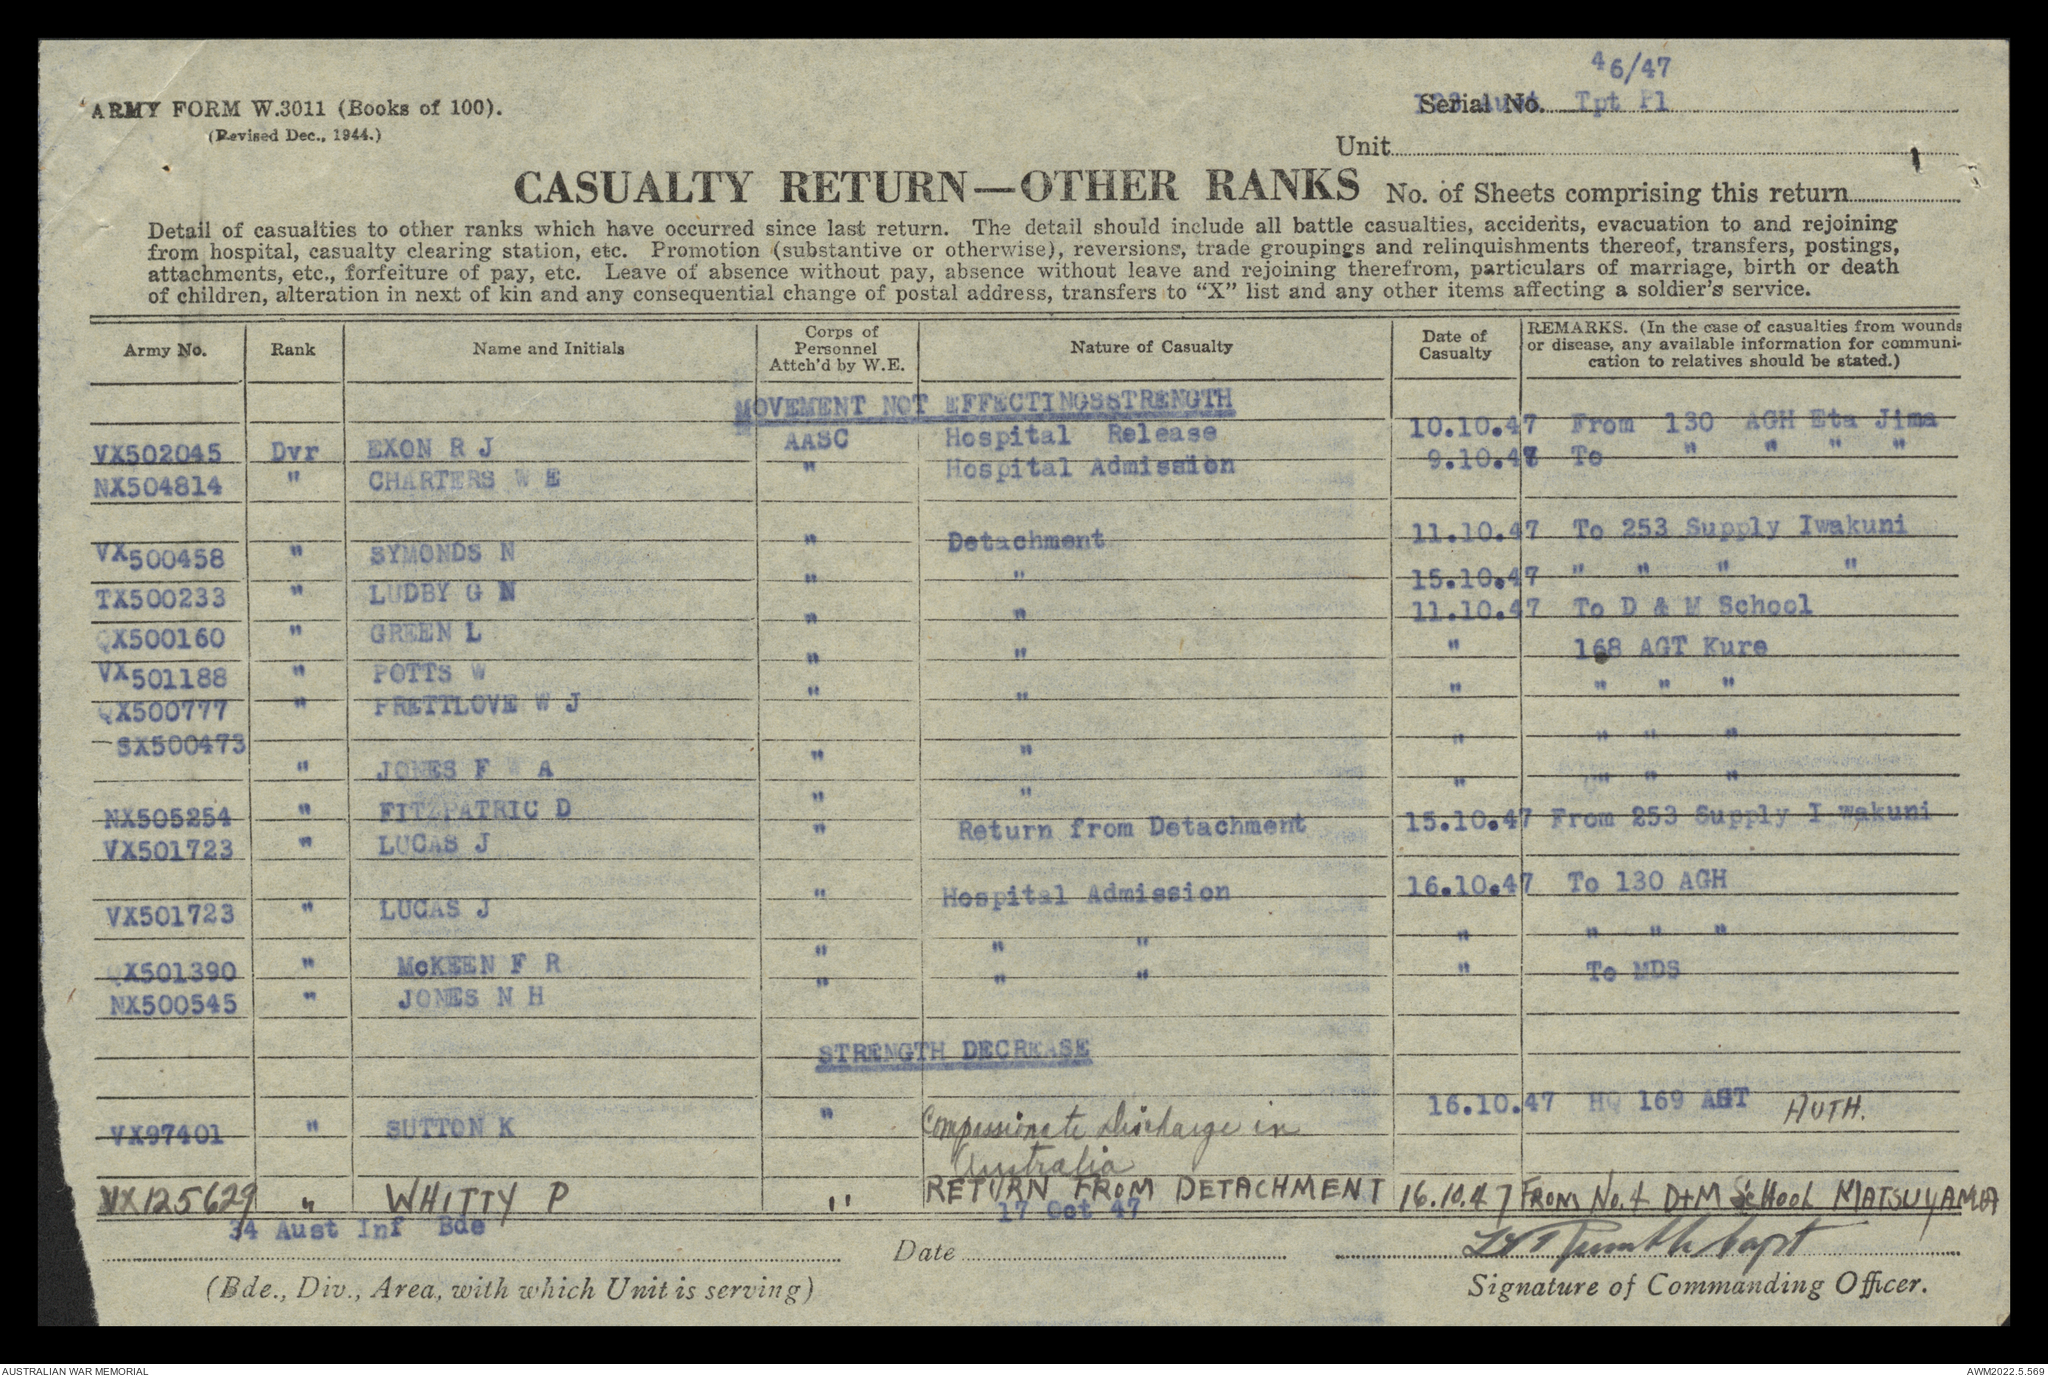 46/47
ARMY FORM W.3011 (Books of 100).
Serial No. Tpt Pl
(Revised Dec., 1944.)
Unit
1
CASUALTY RETURN—OTHER RANKS No. of Sheets comprising this return
Detail of casualties to other ranks which have occurred since last return. The detail should include all battle casualties, accidents, evacuation to and rejoining
from hospital, casualty clearing station, etc. Promotion (substantive or otherwise), reversions, trade groupings and relinquishments thereof, transfers, postings,
attachments, etc., forfeiture of pay, etc. Leave of absence without pay, absence without leave and rejoining therefrom, particulars of marriage, birth or death
of children, alteration in next of kin and any consequential change of postal address, transfers to “X” list and any other items affecting a soldier's service.
Army No. Rank Name and Initials Corps of Personnel Attch'd by W.E. Nature of Casualty Date of Casualty REMARKS. (In the case of casualties from wounds or disease, any available information for communi-cation to relatives should be stated.)
MOVEMENT NOT EFFECTINGSSTRENGTH
VX502045 Dvr EXON R J AASC Hospital Release 10.10.47 From 130 AGH Eta Jima
NX504814 " CHARTERS W E " Hospital Admission 9.10.47 To " " " "
VX500458 " SYMONDS N " Detachment 11.10.47 To 253 Supply Iwakuni
TX500233 " LUDBY G N " " 15.10.47 " " " "
QX500160 " GREEN L " " 11.10.47 To D & M School
VX501188 " POTTS W " " " 168 AGT Kure
QX500777 " PRETTLOVE W J " " " " " "
SX500473 " JONES F W A " " " " " "
NX505254 " FITZPATRIC D " " " " " "
VX501723 " LUCAS J " Return from Detachment 15.10.47 From 253 Supply I wakuni
VX501723 " LUCAS J " Hospital Admission 16.10.47 To 130 AGH
QX501390 " McKEEN F R " " " " " " "
NX500545 " JONES N H " " " " To MDS
STRENGTH DECREASE
VX97401 " SUTTON K " Compassionate Discharge in Australia 16.10.47 HQ 169 AGT AUTH.
VX125629 " WHITTY P " RETURN FROM DETACHMENT 16.10.47 FROM No.4 D+M SCHOOL MATSUYAMA
34 Aust Inf Bde
17 Oct 47
Date
Capt
(Bde., Div., Area, with which Unit is serving)
Signature of Commanding Officer.
AUSTRALIAN WAR MEMORIAL
AWM2022.5.569